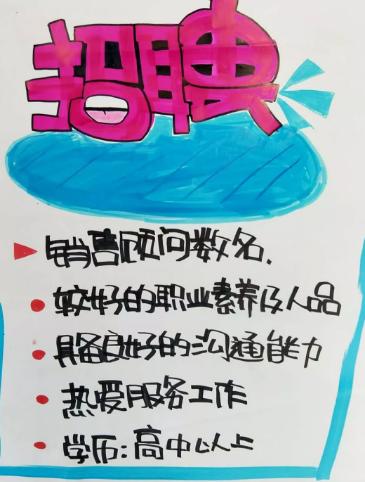 招聘
销售顾问数名.
较好的职业素养及人品
具备良好的沟通能力
热爱服务工作
学历:高中以上